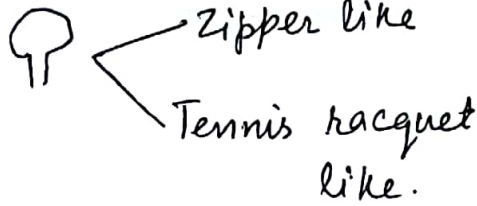 Zipper like
Tennis racquet
like.